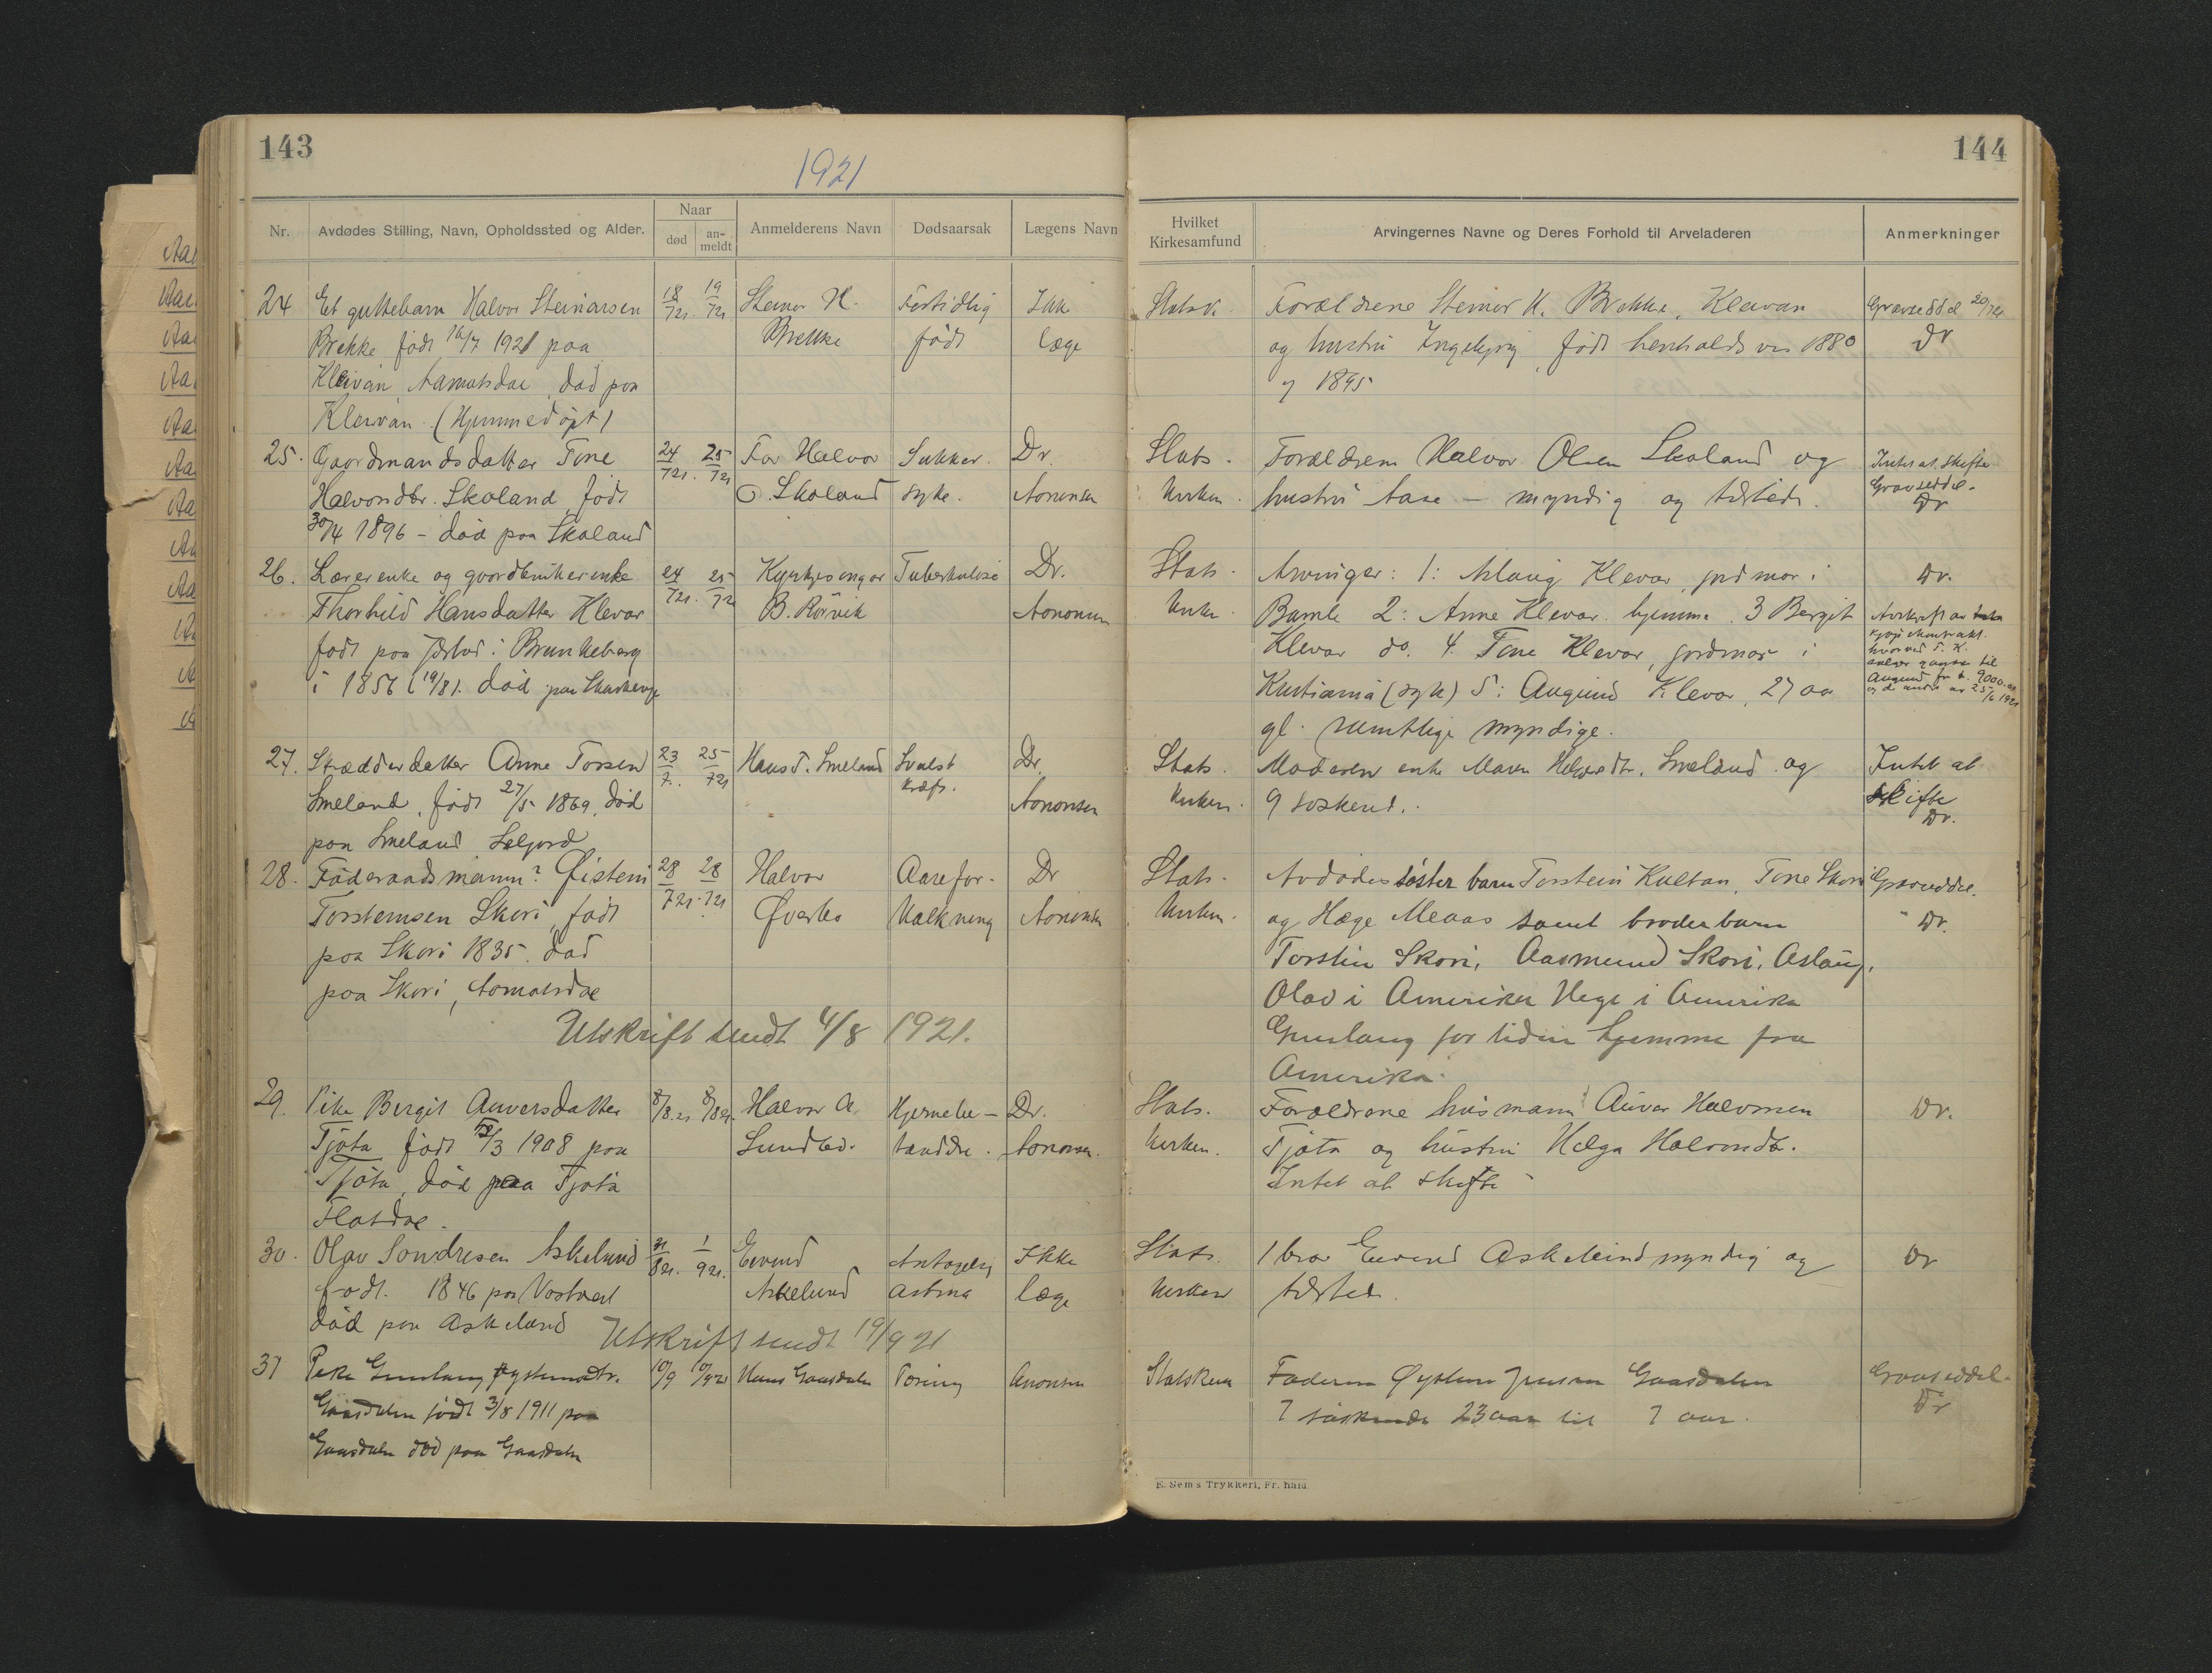 143
1921
Nr.
Avdødes Stilling, Navn, Opholdssted og Alder.
Naar
død
an-
meldt
Anmelderens Navn
Dødsaarsak
Lægens Navn
24
Et guttebarn Halvor Steinarsen
Brekke født 16/7 1921 paa
Kleivan Aamotsdal, død paa
Kleivan. (Hjemmedøpt)
18/721.
19/721
Steinar H.
Brekke
Fortidlig
født
Ikke
læge
25.
Gaardmandsdatter Tone
Halvorsdtr. Skoland, født
30/4 1896 - død paa Skoland
24/721.
25/721
Far Halvor
O. Skoland
Sukker.
syke.
Dr.
Aanonsen
26.
Lærerenke og gaardbrukerenke
Thorbild Hansdatter Klevar
født paa i Brunkeberg
i 1856 (19/8). død paa
24/721.
25/72
Kyrkjesongar
B. Rørvik
Tuberkulose
Dr.
Aanonsen
27.
Skrædderdatter Anne Torsen
Smeland, født 27/5 1869, død
paa Smeland Seljord
23/7.
25/721
Hans T. Smeland
Svulst
kræft.
Dr.
Aanonsen
28.
Føderaadsmann? Øistein
Torsteinsen Skori, født
paa Skori 1835. død
paa Skori, Aamotsdal
28/721.
28/721
Halvor
Øverbø
Aarefor-
kalkning
Dr
Aanonsen
Utskrift sendt 4/8 1921.
29.
Pike Bergit Auversdatter
Tjöta født /3 1908 paa
Tjöta, død paa Tjöta
Flatdal.
8/8.21
8/8 21.
Halvor A.
Sundbø.
Hjernebe-
tændelse.
Dr.
Aanonsen.
30.
Olav Sondresen Askelund
født. 1846 paa
død paa Askelund
31/821.
1/921.
Eivind
Askelund
Antagelig
astma
Ikke
læge
Utskrift sendt 19/9 21
31
Pike Gunlaug Øystensdtr.
Gaasdalen født 3/8 1911 paa
Gaasdalen død paa Gaasdalen
10/9
10/921
Hans Gaasdalen
Tæring
Aanonsen
144
Hvilket
Kirkesamfund
Arvingernes Navne og Deres Forhold til Arveladeren
Anmerkninger
Statsk.
Forældrene Steinar H. Brekke, Kleivan
og hustru Ingebjørg, født henholdsvis 1880
og 1895
Gravseddel 20/721
Dr
Stats.
kirken.
Forældrene Halvor Olsen Skoland og
hustru Aase - myndig og tilstede.
Intet at skifte
Gravseddel.
Dr
Stats
kirken.
Arvinger: 1: Aslaug Klevar, jordmor i
Bamle 2: Anne Klevar. hjemme. 3 Bergit
Klevar do. 4. Tone Klevar, jordmor i
Kristiania (syk) 5: Augund Klevar, 27 aar
gl. samtlige myndige.
Dr.
Avskrift av
kjøpekontrakt.
hvorved T. K.
sælger til
Augund for kr. 9000.
25/6 1921
Stats.
kirken.
Moderen enke Maren Smeland og
9 søskend.
Intet at
skifte
Dr.
Stats-
kirken.
Avdødes søsterbarn Torstein Kultan, Tone Skori
og Hæge Meaas samt broderbarn
Torstein Skori, Aasmund Skori, Aslaug,
Olav i Amerika Hege i Amerika
Gunlaug for tiden hjemme fra
Amerika.
Gravseddel.
Dr.
Stats.
kirken.
Forældrene husmann Auver Halvorsen
Tjöta og hustru Helga Halvorsdtr.
Intet at skifte
Dr.
Stats.
kirken
1 bror Eivind Askelund myndig og
tilstede.
Dr
Statskirken
Faderen Øysten Jensen Gaasdalen
7 søskende 23 aar til 7 aar.
Gravseddel.
Dr
E. Sem's Trykkeri, Fr. hald.